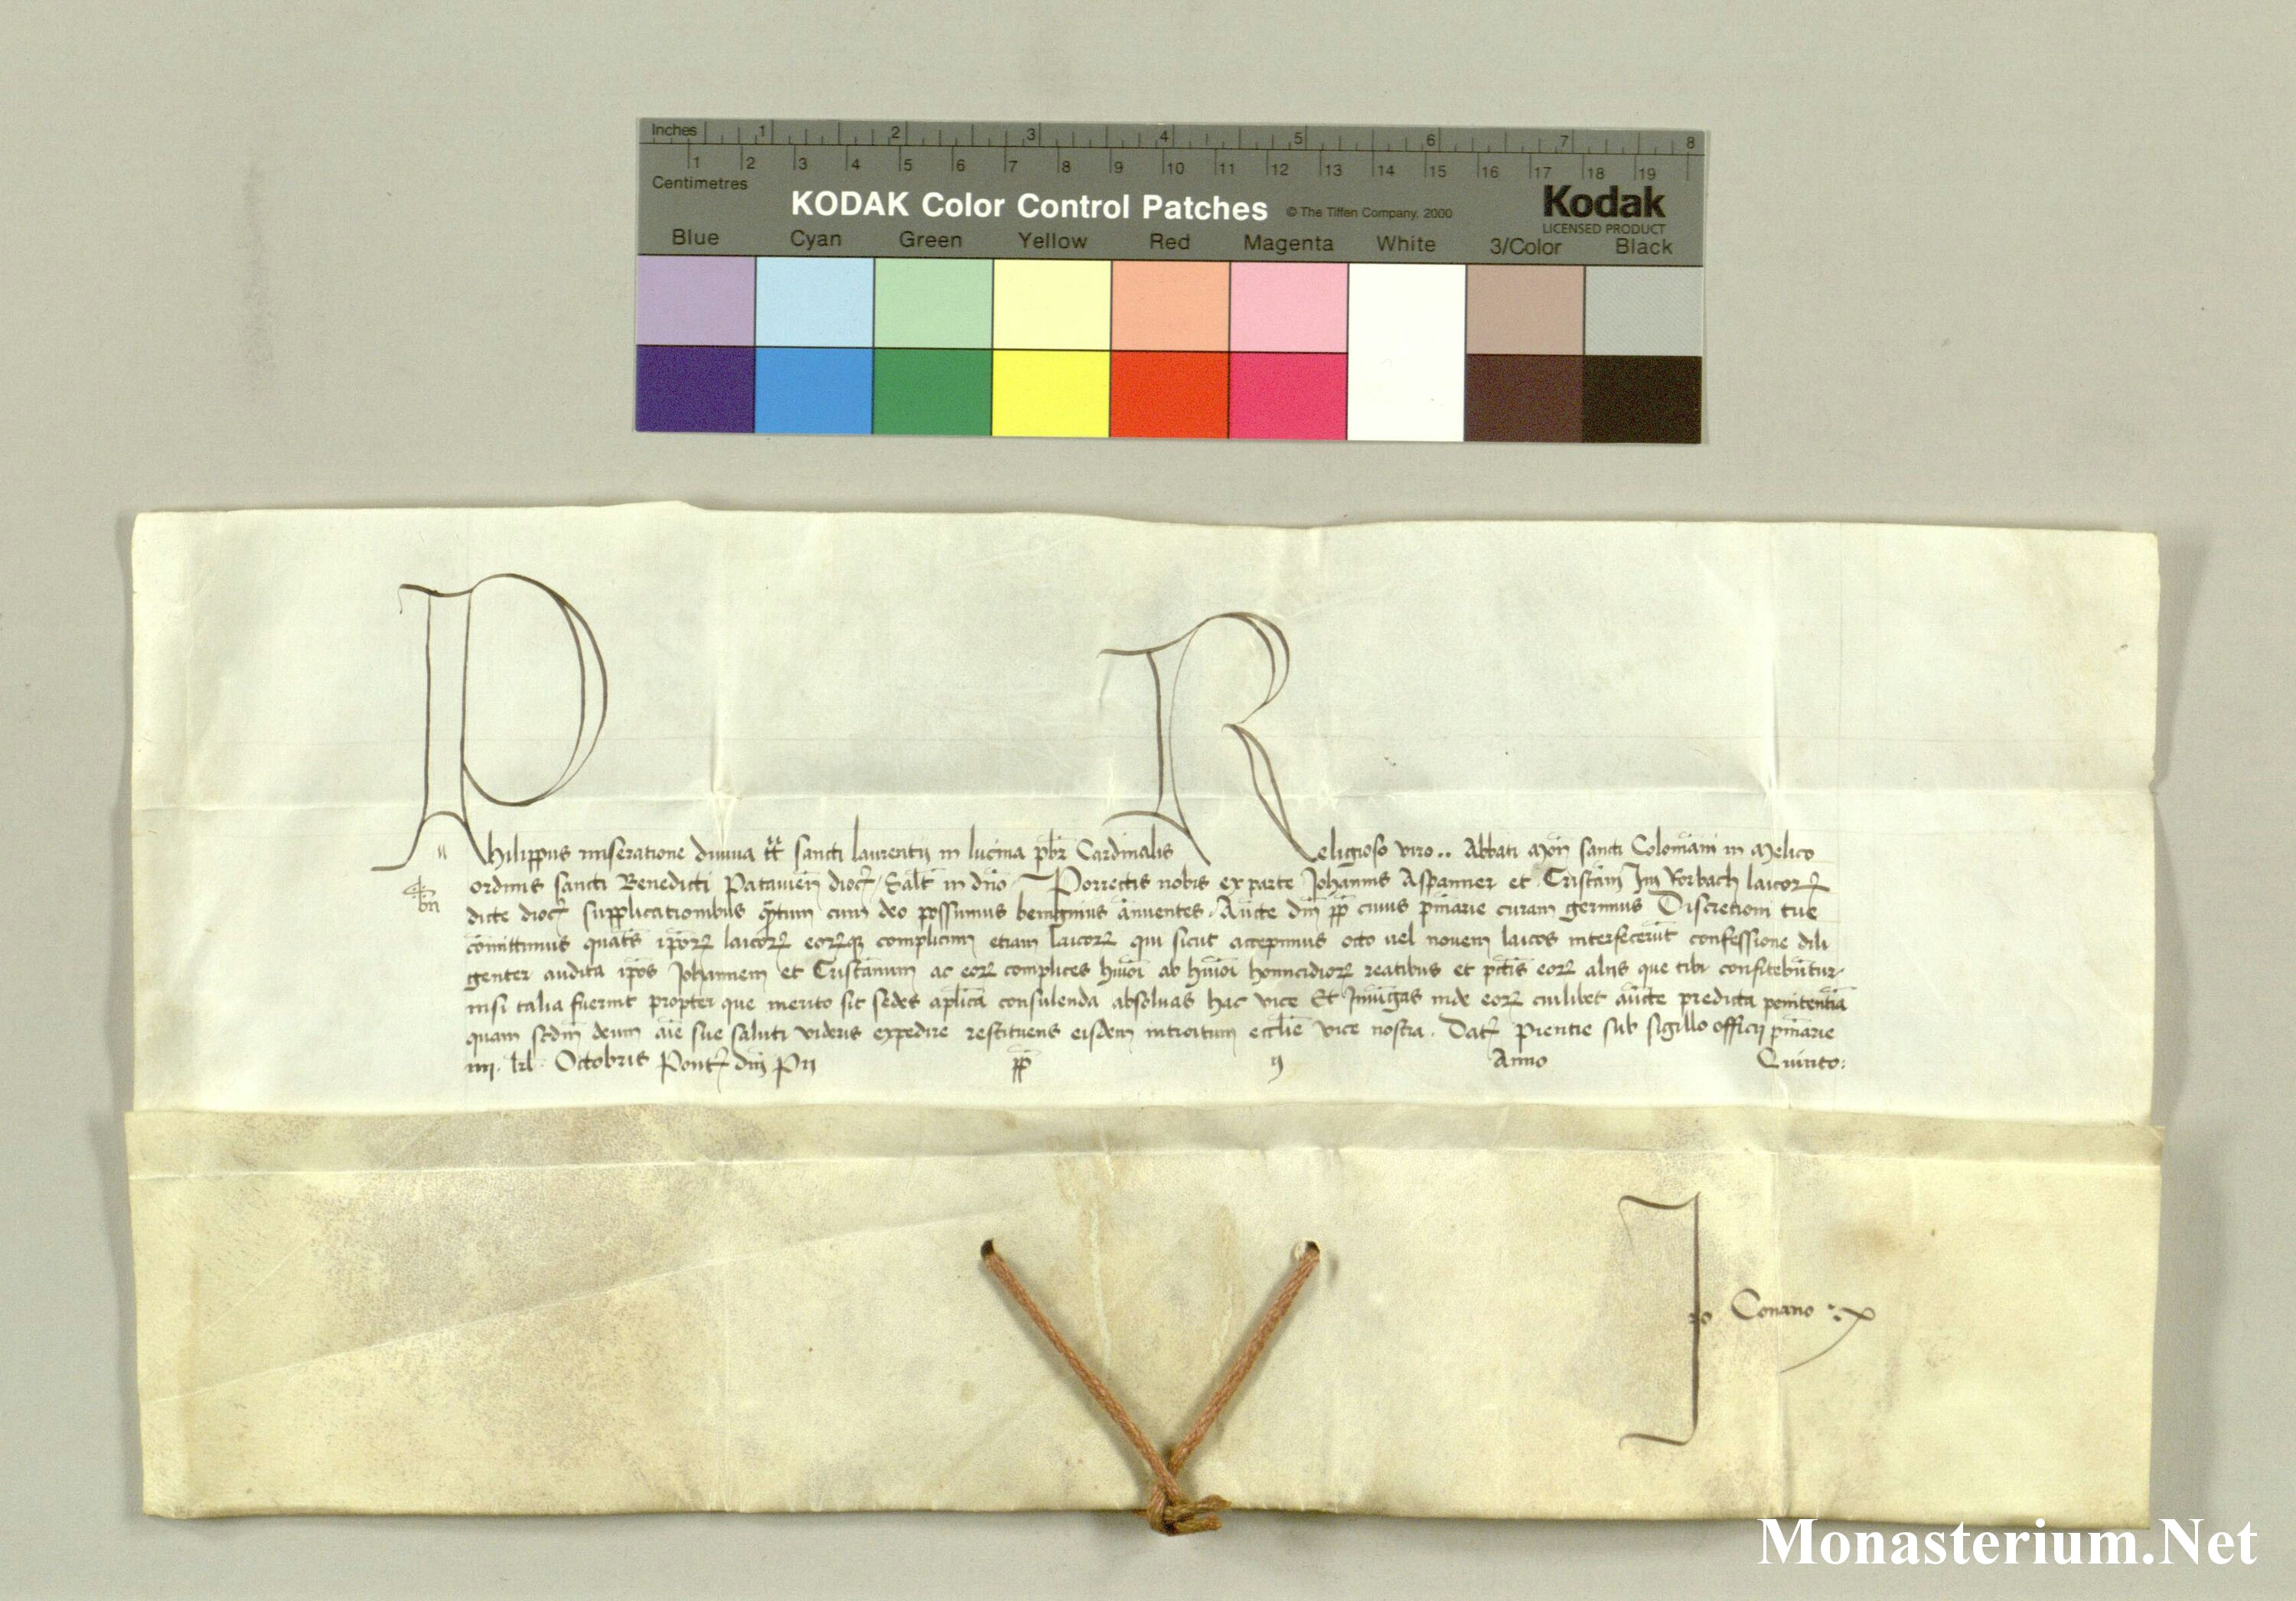 Inches 1 2 3 4 5 6 7 8
1 2 3 4 5 6 7 8 9 10 11 12 13 14 15 16 17 18 19
Centimetres
KODAK Color Control Patches © The Tiffen Company, 2000 Kodak
LICENSED PRODUCT
Blue Cyan Green Yellow Red Magenta White 3/Color Black
Philippus miseratione diuina tt̄ sancti laurentij in lucina pb̄r Cardinalis Religioso viro .. Abbati Mon̄ sancti Colomāni in Melico
ordinis sancti Benedicti Patauien̄ dioc̄ Salt̄ in dn̄o Porrectis nobis ex parte Johannis Aspanner et Cristāni Im Rorbach laicoꝝ
dicte dioc̄ supplicationibus qn̄tum cum deo possumus benignius ānuentes Aucte dn̄i pp̄ cuius pn̄iarie curam gerimus Discretioni tue
cōmittimus quat̄s ip̄oꝝ laicoꝝ eoꝝqꝫ complicum etiam laicoꝝ qui sicut accepimus octo uel nouem laicos interfecerūt confessione dili
genter audita ip̄os Johannem et Cristānum ac eoꝝ complices hmōi ab hmōi homicidioꝝ reatibus et pct̄is eoꝝ aliis que tibi confitebūtur
nisi talia fuerint propter que merito sit sedes aplīca consulenda absoluas hac vice Et Iniūgas inde eoꝝ cuilibet aūcte predicta penitentiā
quam scdm̄ deum aīe sue saluti videris expedire restituens eisdem introitum ecclīe vice nostra. Dat̄ Pientie sub sigillo officij pn̄iarie
iiij. kl̄. Octobris Pont̄ dn̄i Pij pp̄ ij Anno Quinto:
Jo Conano
Monasterium.Net